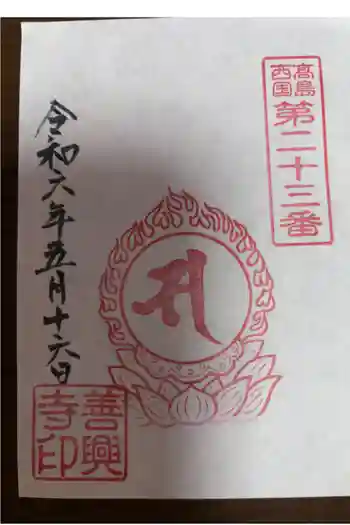 高島
西国
第二十三番
令和六年五月十六日
善興
寺印